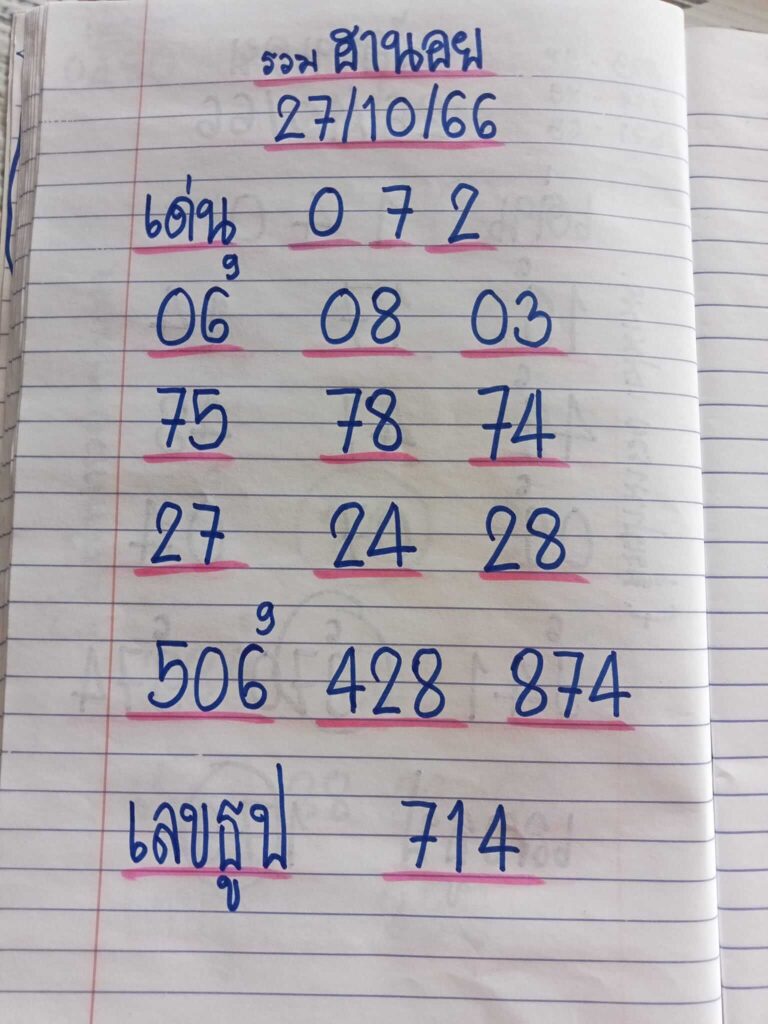 รวม ฮานอย
27/10/66
เด่น 0 7 2
9
06 08 03
75 78 74
27 24 28
9
506 428 874
เลขธูป 714